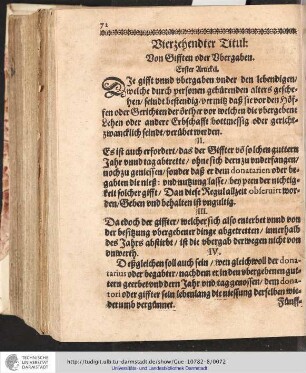 72
Vierzehendter Titul:
Von Gifften oder Vbergaben.
Erster Articul.
Die gifft vnnd vbergaben vnder den lebendigen/
welche durch personen gebürenden alters gesche-
hen/ seindt bestendig/ vermits daß sie vor den Höf-
fen oder Gerichten der örther vor welchen die vbergebene
Lehen oder andere Erbschafft hoffmessig oder gericht-
zwancklich seindt/ verübet werden.
II.
Es ist auch erfordert/ das der Giffter võ solchen guttern
Jahr vnnd tag abtrette/ ohne sich dern zu vnderfangen/
noch zu geniessen/ sonder daß er dem donatarien oder be-
gabten die nieß: vnd nutzung lasse/ bey peen der nichtig-
keit solcher gifft/ Dan diese Regul allzeit obseruirt wor-
den/ Geben vnd behalten ist vngultig.
III.
Da doch der giffter/ welcher sich also enterbet vnnd von
der besitzung vbergebener dinge abgetretten/ innerhalb
des Jahrs abstirbt/ ist die vbergab derwegen nicht von
vnwerth.
IV.
Deßgleichen soll auch sein/ wen gleichwoll der dona-
tarius oder begabter/ nachdem er in den vbergebenen gut-
tern geerbet vnd dern Jahr vnd tag genossen/ dem dona-
tori oder giffter sein lebenlang die niessung derselben wie-
derumb vergünnet.
Fünff-
TECHNISCHE
UNIVERSITÄT
DARMSTADT
http://tudigit.ulb.tu-darmstadt.de/show/Gue-10782-8/0072
Universitäts- und Landesbibliothek Darmstadt